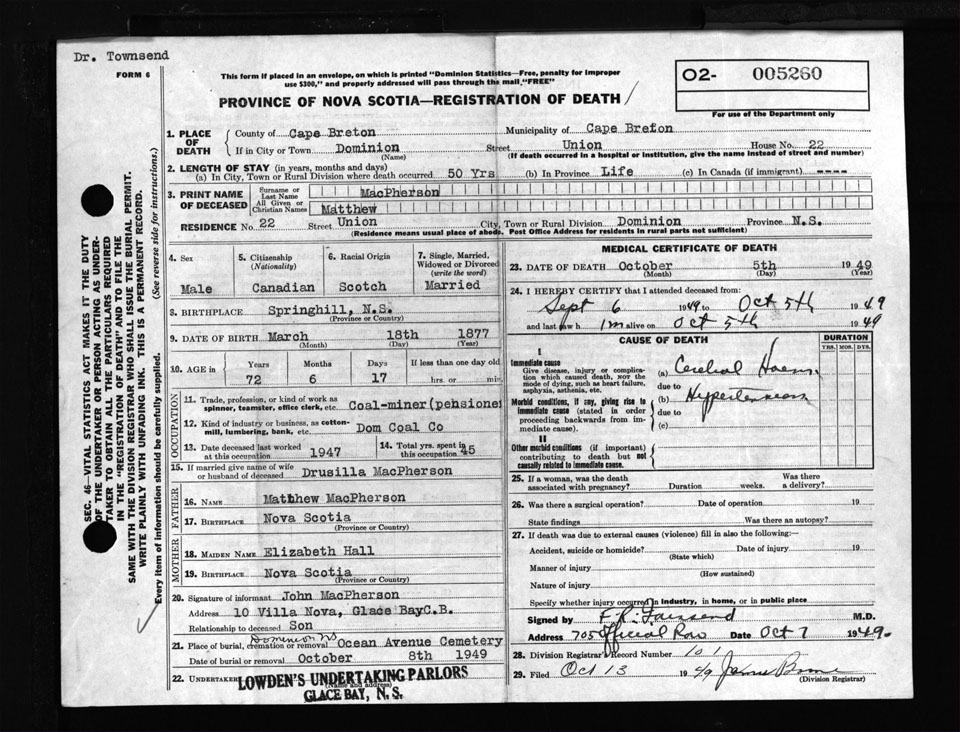 Dr. Townsend
FORM 6
This form if placed in an envelope, on which is printed "Dominion Statistics—Free, penalty for improper
use $300," and properly addressed will pass through the mail "FREE"
PROVINCE OF NOVA SCOTIA—REGISTRATION OF DEATH
O2- 005260
For use of the Department only
SEC. 46—VITAL STATISTICS ACT MAKES IT THE DUTY
OF THE UNDERTAKER OR PERSON ACTING AS UNDER-
TAKER TO OBTAIN ALL THE PARTICULARS REQUIRED
IN THE "REGISTRATION OF DEATH" AND TO FILE THE
SAME WITH THE DIVISION REGISTRAR WHO SHALL ISSUE THE BURIAL PERMIT.
WRITE PLAINLY WITH UNFADING INK. THIS IS A PERMANENT RECORD.
Every item of information should be carefully supplied. (See reverse side for instructions.)
1. PLACE OF DEATH
County of Cape Breton Municipality of Cape Breton
If in City or Town Dominion Street Union House No. 22
(Name) (If death occurred in a hospital or institution, give the name instead of street and number)
2. LENGTH OF STAY (in years, months and days)
(a) In City, Town or Rural Division where death occurred 50 Yrs (b) In Province Life (c) In Canada (if immigrant) ----
3. PRINT NAME OF DECEASED
Surname or Last Name MacPherson
All Given or Christian Names Matthew
RESIDENCE No. 22 Street Union City, Town or Rural Division Dominion Province N.S.
(Residence means usual place of abode. Post Office Address for residents in rural parts not sufficient)
4. Sex Male
5. Citizenship (Nationality) Canadian
6. Racial Origin Scotch
7. Single, Married, Widowed or Divorced (write the word) Married
8. BIRTHPLACE Springhill, N.S.
(Province or Country)
9. DATE OF BIRTH March 18th 1877
(Month) (Day) (Year)
10. AGE in Years Months Days If less than one day old
72 6 17 hrs. or min.
OCCUPATION
11. Trade, profession, or kind of work as
spinner, teamster, office clerk, etc. Coal-miner(pensioner
12. Kind of industry or business, as cotton-
mill, lumbering, bank, etc. Dom Coal Co
13. Date deceased last worked at this occupation 1947
14. Total yrs. spent in this occupation 45
15. If married give name of wife
or husband of deceased Drusilla MacPherson
FATHER
16. NAME Matthew MacPherson
17. BIRTHPLACE Nova Scotia
(Province or Country)
MOTHER
18. MAIDEN NAME Elizabeth Hall
19. BIRTHPLACE Nova Scotia
(Province or Country)
20. Signature of informant John MacPherson
Address 10 Villa Nova, Glace BayC.B.
Relationship to deceased Son
Dominion NS
21. Place of burial, cremation or removal Ocean Avenue Cemetery
Date of burial or removal October 8th 1949
22. UNDERTAKER LOWDEN'S UNDERTAKING PARLORS
(Name and address)
GLACE BAY, N. S.
MEDICAL CERTIFICATE OF DEATH
23. DATE OF DEATH October 5th 1949
(Month) (Day) (Year)
24. I HEREBY CERTIFY that I attended deceased from:
Sept 6 1949 to Oct 5th 1949
and last saw h im alive on Oct 5th 1949
CAUSE OF DEATH
DURATION
YRS. MOS. DYS.
I
Immediate cause
Give disease, injury or complica-
tion which caused death, not the
mode of dying, such as heart failure,
asphyxia, asthenia, etc.
(a) Cerebral Haem.
due to
Morbid conditions, if any, giving rise to
immediate cause (stated in order
proceeding backwards from im-
mediate cause).
(b) Hypertension
due to
(c)
II
Other morbid conditions (if important)
contributing to death but not
causally related to immediate cause.
25. If a woman, was the death
associated with pregnancy? Duration weeks. Was there a delivery?
26. Was there a surgical operation? Date of operation 19
State findings Was there an autopsy?
27. If death was due to external causes (violence) fill in also the following:—
Accident, suicide or homicide? Date of injury 19
(State which)
Manner of injury
(How sustained)
Nature of injury
Specify whether injury occurred in industry, in home, or in public place
Signed by F.R. Townsend M.D.
Address 705 Official Row Date Oct 7 1949.
28. Division Registrar's Record Number 101
29. Filed Oct 13 1949
(Division Registrar)